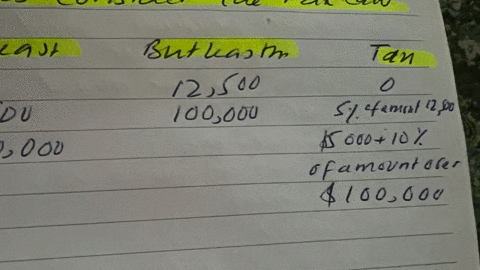 Consider the Tax law
east But Less than Tax
12,500 0
00 100,000 5% of amount 12,500
0,000 $5000+10%
of amount over
$100,000